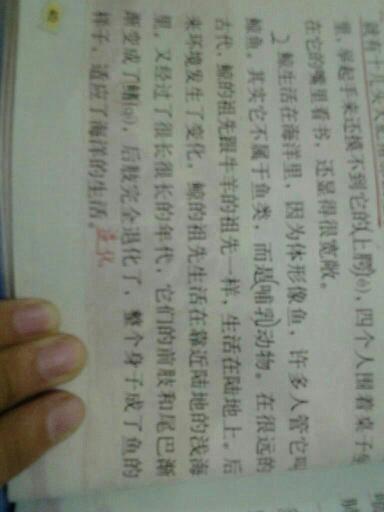 就有十几头大
里，举起手来还摸不到它的(上腭)(è)，四个人围着桌子坐
在它的嘴里看书，还显得很宽敞。
2 鲸生活在海洋里，因为体形像鱼，许多人管它叫
鲸鱼。其实它不属于鱼类，而是(哺乳)动物。在很远的
古代，鲸的祖先跟牛羊的祖先一样，生活在陆地上。后
来环境发生了变化，鲸的祖先生活在靠近陆地的浅海
里。又经过了很长很长的年代，它们的前肢和尾巴渐
渐变成了鳍(qí)，后肢完全退化了，整个身子成了鱼的
样子，适应了海洋的生活。